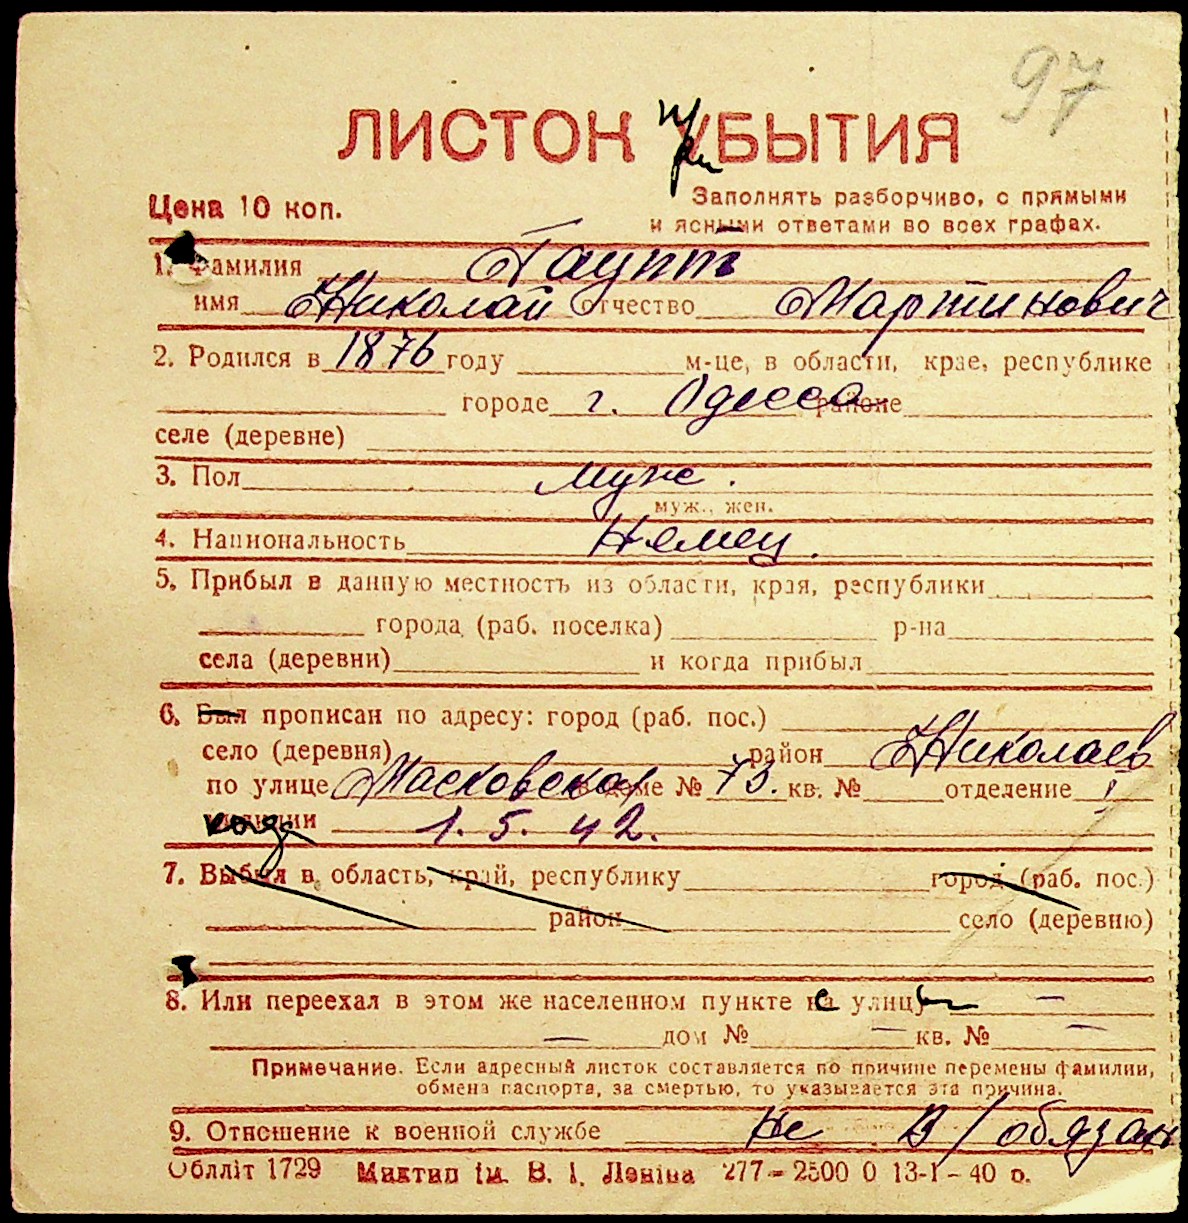 97
ЛИСТОК при УБЫТИЯ
Цена 10 коп.
Заполнять разборчиво, с прямыми
и ясными ответами во всех графах.
1. Фамилия Гаупт
имя Николай отчество Мартинович
2. Родился в 1876 году м-це, в области, крае, республике
городе г. Одесса районе
селе (деревне)
3. Пол муж.
муж., жен.
4. Национальность Немец.
5. Прибыл в данную местность из области, края, республики
города (раб. поселка) р-на
села (деревни) и когда прибыл
6. Был прописан по адресу: город (раб. пос.)
село (деревня) район Николаев
по улице Масковская в доме № 73. кв. № отделение 1
милиции когда 1. 5. 42.
7. Выбыл в область, край, республику город (раб. пос.)
район село (деревню)
8. Или переехал в этом же населенном пункте на с улицу ы —
— дом № — кв. № —
Примечание. Если адресный листок составляется по причине перемены фамилии,
обмена паспорта, за смертью, то указывается эта причина.
9. Отношение к военной службе не в/обязан
Облліт 1729 Миктип ім. В. І. Леніна 277-2500 0 13-I-40 р.